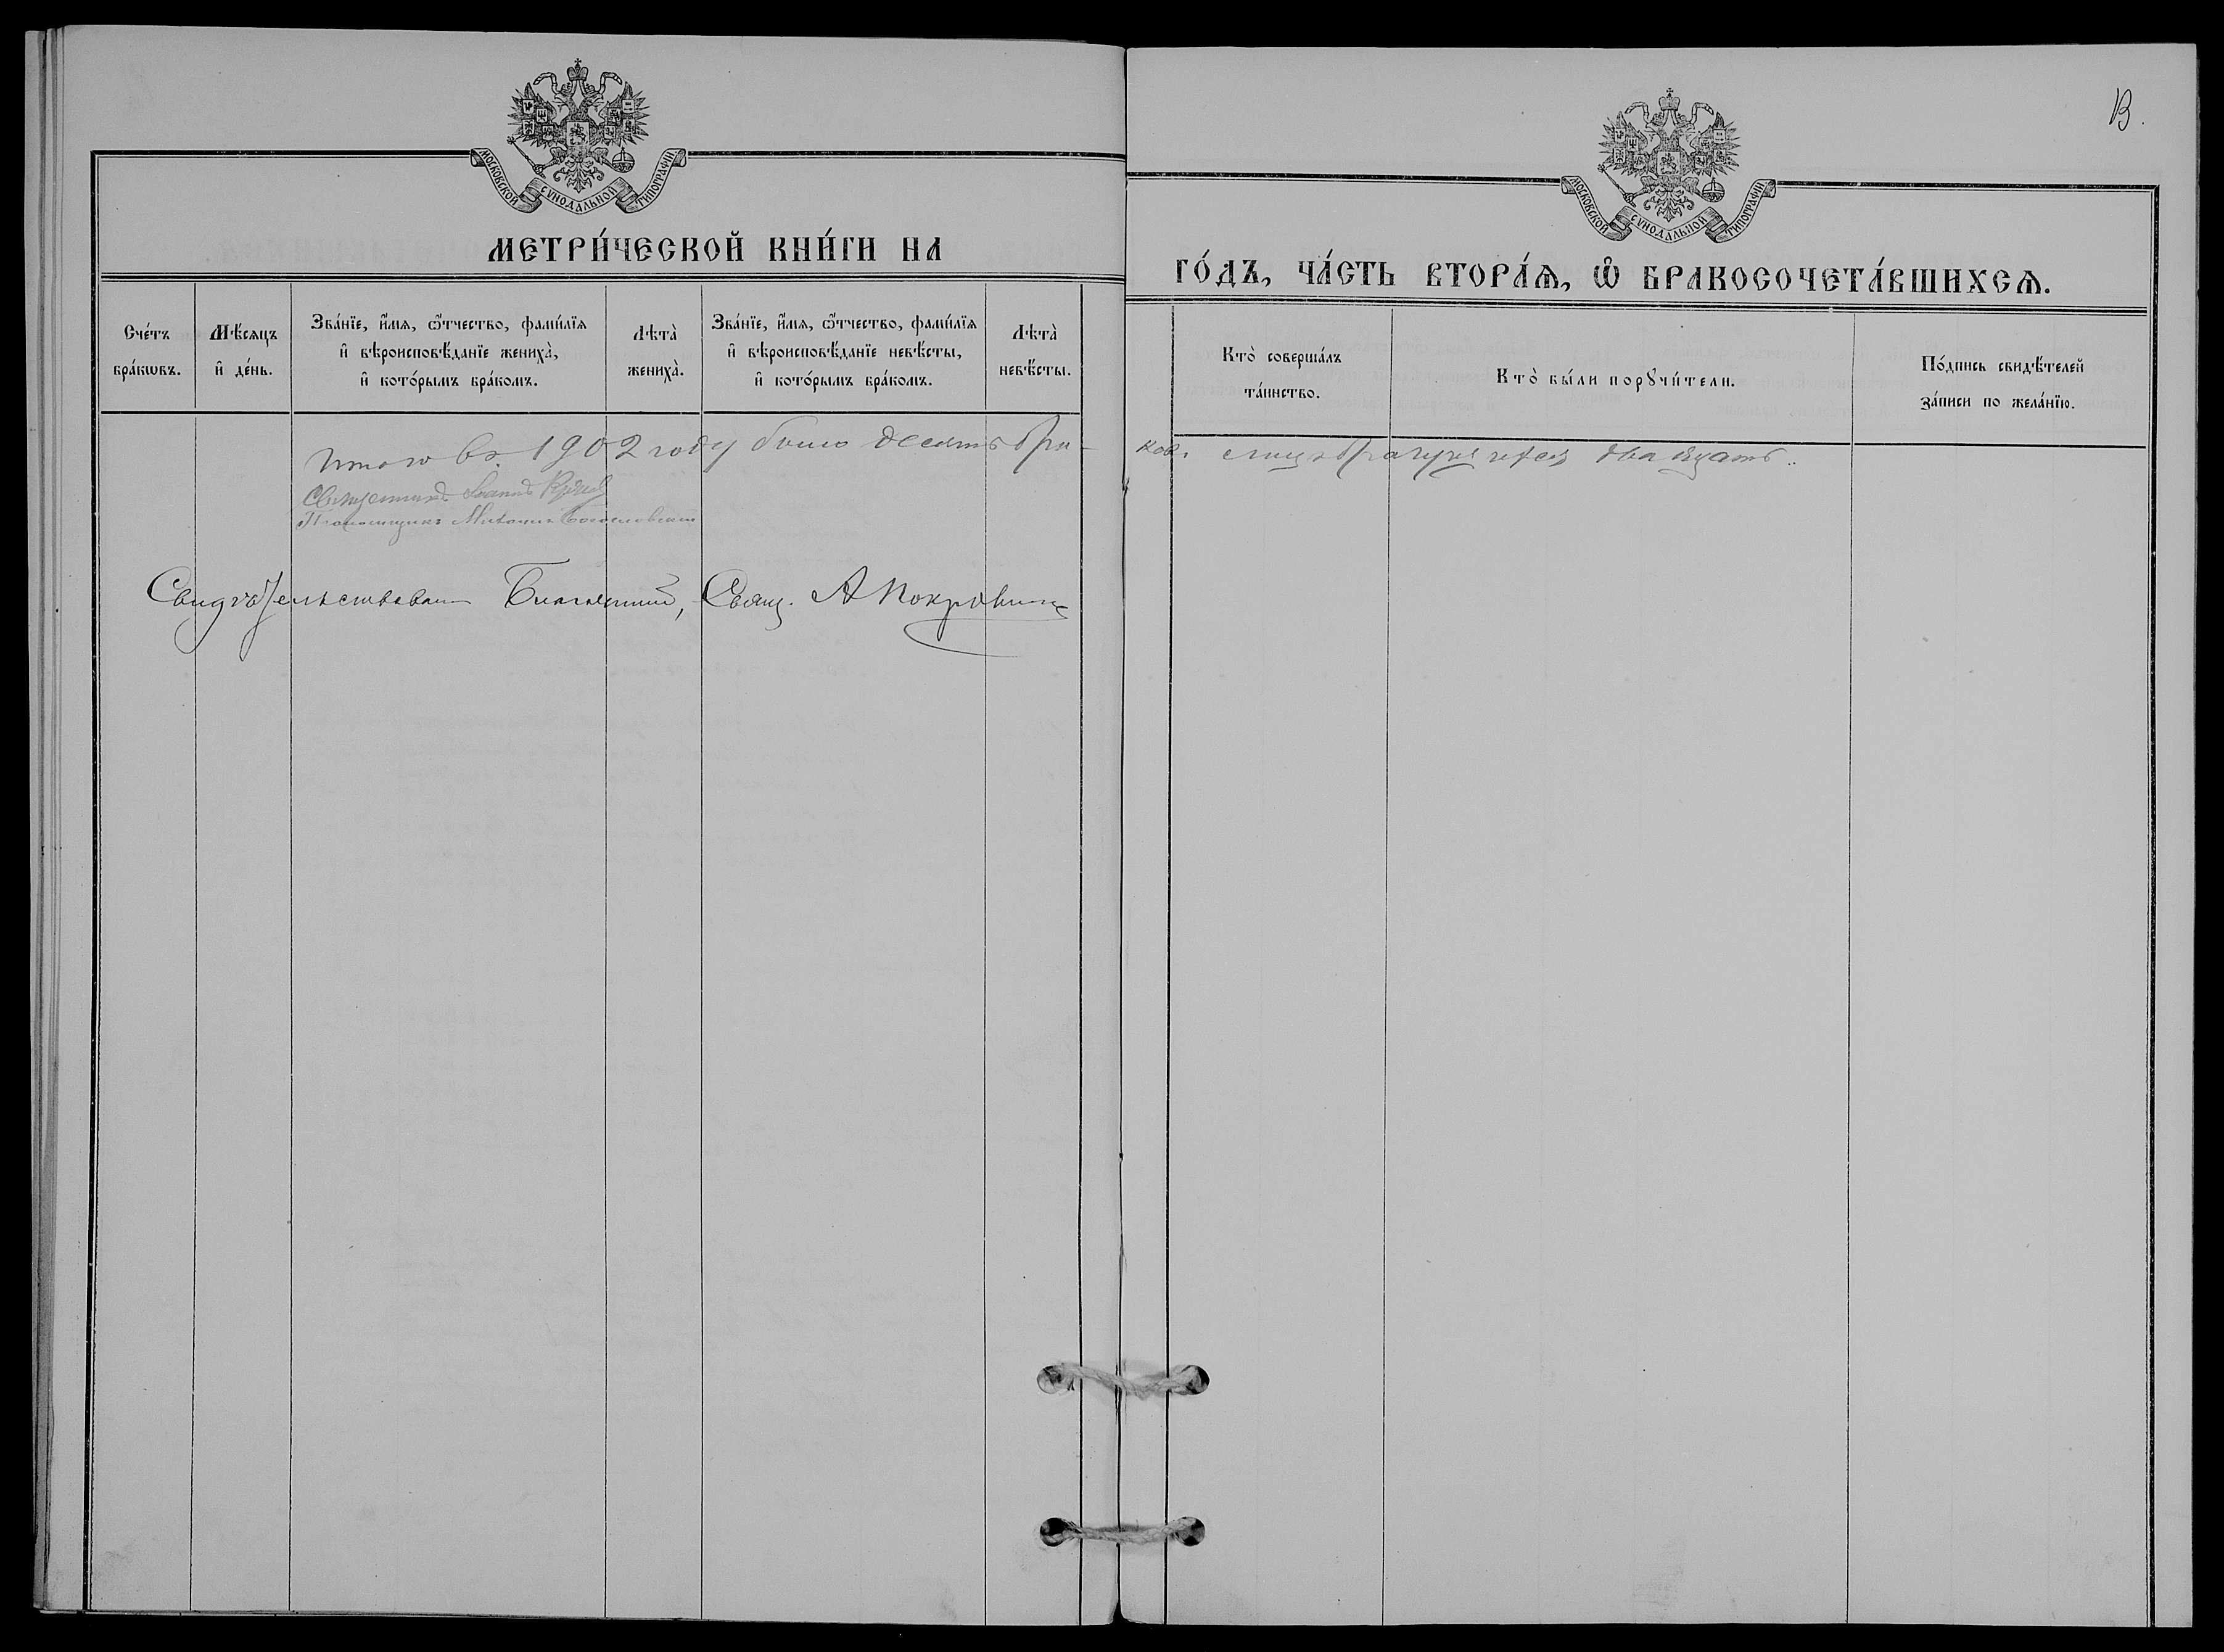 13.
МОСКОВСКОЙ СѴНОДАЛЬНОЙ ТИПОГРАФІИ.
МОСКОВСКОЙ СѴНОДАЛЬНОЙ ТИПОГРАФІИ.
МЕТРИ́ЧЕСКОЙ КНИ́ГИ НА
ГО́ДЪ, ЧА́СТЬ ВТОРА́Ѧ, Ѽ БРАКОСОЧЕТА́ВШИХСѦ.
Сче́тъ бра́кѡвъ.
Мѣ́сяцъ и҆ де́нь.
Зва́нїе, и҆́мѧ, ѻ҆́тчество, фами́лїѧ
и҆ вѣроисповѣ́данїе жениха̀,
и҆ кото́рымъ бра́комъ.
Лѣта̀ жениха̀.
Зва́нїе, и҆́мѧ, ѻ҆́тчество, фами́лїѧ
и҆ вѣроисповѣ́данїе невѣ́сты,
и҆ кото́рымъ бра́комъ.
Лѣта̀ невѣ́сты.
Кто̀ соверша́лъ та́инство.
Кто̀ бы́ли порꙋчи́тели.
По́дпись свидѣ́телей за́писи по жела́нїю.
Итого въ 1902 году было десять бра-
ков. лицъ двадцать..
Священникъ Іоаннъ
Псаломщикъ Михаилъ Богословскій
Свидѣтельствовалъ Благочинный, Свящ. А Покровскій